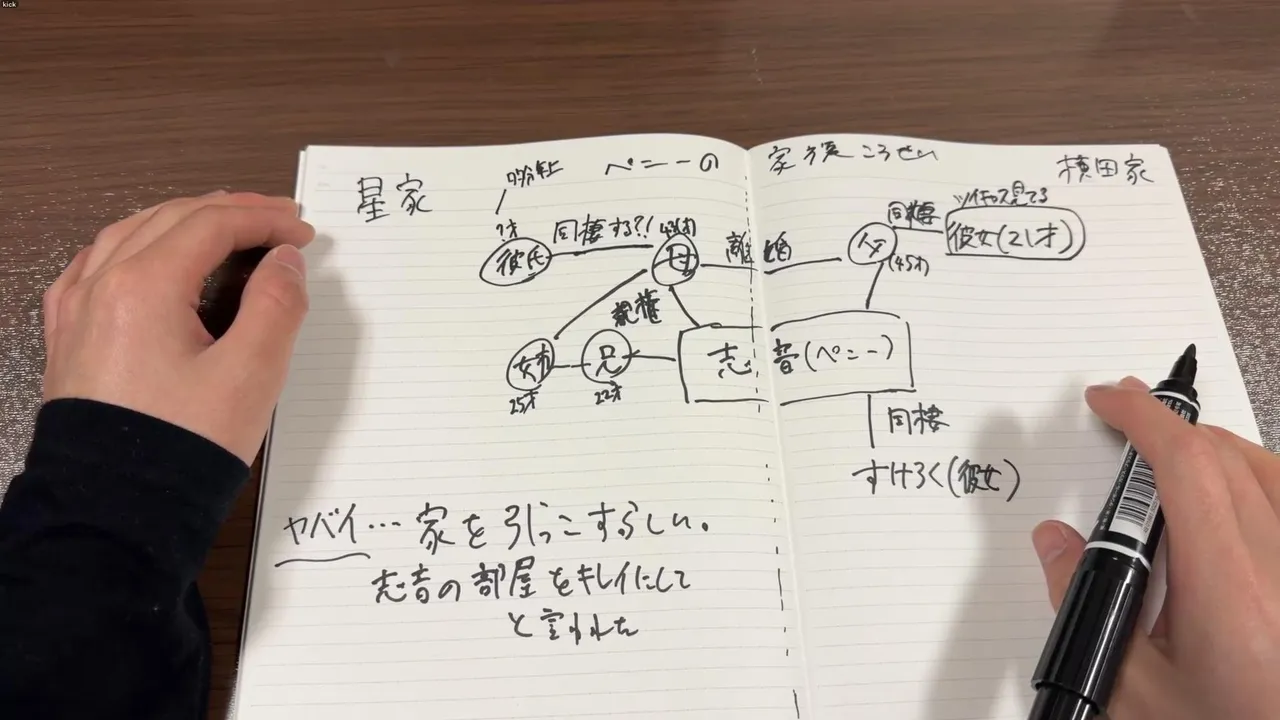 kick
ペニーの 家族こうせい
星家
横田家
?才
彼氏
同棲する?!
母
離婚
父
(45才)
同棲
ツイキャス見てる
彼女(21才)
親権
姉
25才
兄
22才
志音(ペニー)
同棲
すけろく(彼女)
ヤバイ… 家を引っこすらしい。
志音の部屋をキレイにして
と言われた